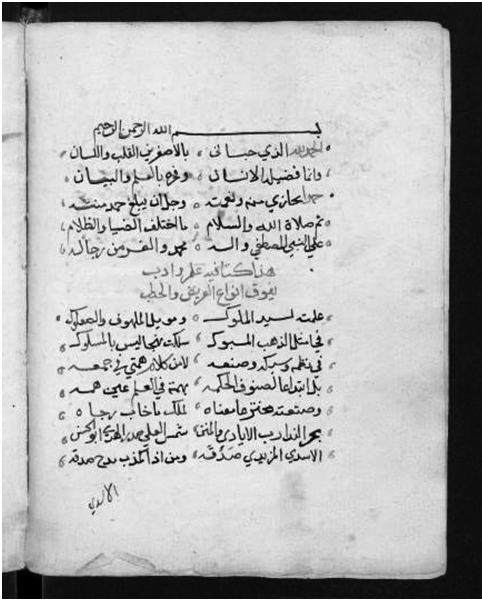 بسم الله الرحمن الرحيم
الحمد لله الذي حباني بالاصغرين القلب واللسان
وانما فضيله الانسان وفخره بالعلم والبيان
حمدا يجازي منه ونعمته وجل ان يبلغ حمد منته
ثم صلاة الله والسلام ما اختلف الضيا والظلام
علي النبي المصطفي واله محمد والغر من رجاله
هذا كتاب فيه علم وادب
يفوق انواع القريض والخطب
عملته لسيد الملوك وموئل الملهوف والصعلوك
في مثل الذهب المسبوك سلكت نهجا ليس بالمسلوك
في نظمه وسبكه وصنعه لان كلا همتي في جمعه
بل ابتداعا لصنوف الحكمه
وصنعته ملك ما خاب رجاه
بحر الندا رب الايادي والمنن شمس العلي ابو الحسن
الاسدي المزيدي صدقه ومن اذا كذب مدح صدقه